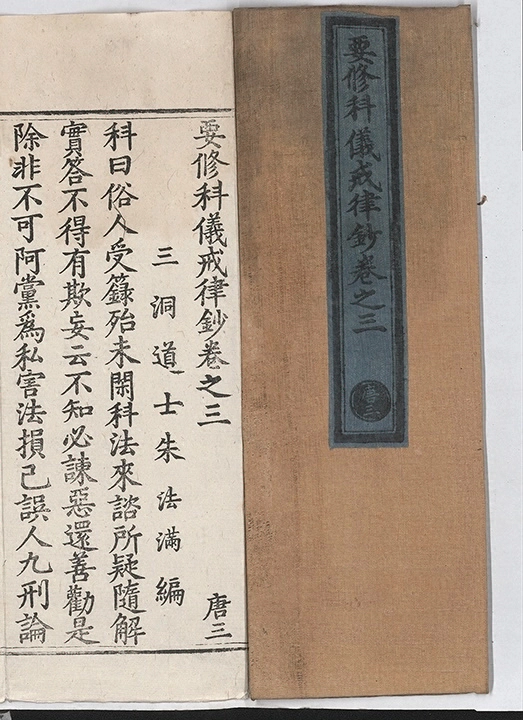 要修科儀戒律鈔卷之三
唐三
要修科儀戒律鈔卷之三
唐三
三洞道士朱法滿編
科曰俗人受籙殆未閑科法來諮所疑隨解
實答不得有欺妄云不知必諫惡還善勸是
除非不可阿黨為私害法損己誤人九刑論